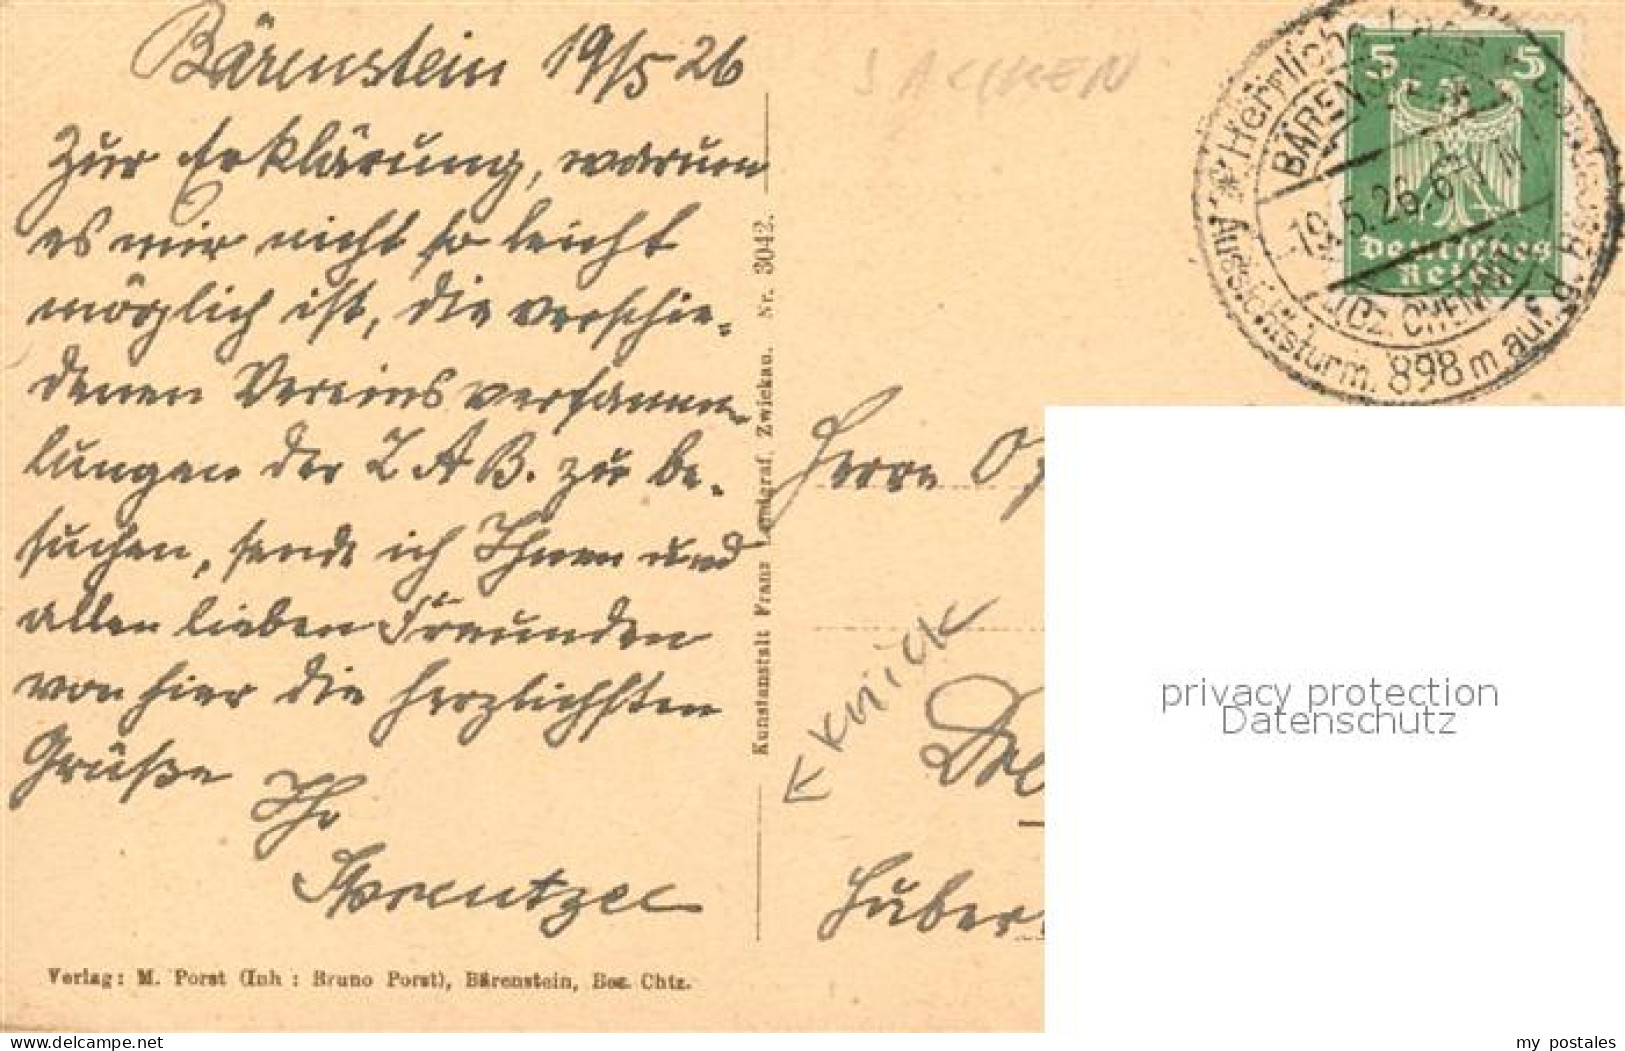 Bärenstein 19/5 26
Zur Erklärung, warum
es mir nicht so leicht
möglich ist, die verschie-
denen Vereinsversamm-
lungen der Z A B. zu be-
suchen, sende ich Ihnen und
allen lieben Freunden
von hier die herzlichsten
Grüße
Ihr
Verlag: M. Porst (Inh : Bruno Porst), Bärenstein, Bez. Chtz.
Kunstanstalt Franz Landgraf, Zwickau. Nr. 3042.
SACHSEN
5 5
Deutsches
Reich
Herrliche
BÄRENSTEIN
-19.5.26.6-7N
BEZ. CHEMNITZ
Aussichtsturm. 898 m auf
Herrn
KNICK
Huber
privacy protection
Datenschutz
my_postales
delcampe.net